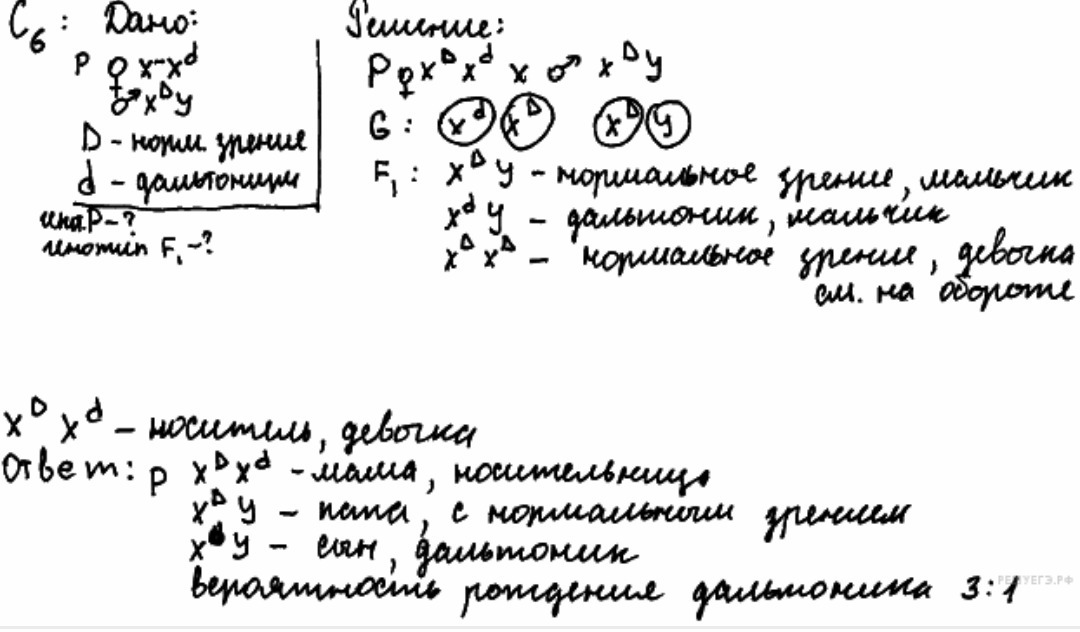 C₆: Дано:
P ♀ x⁻xᵈ
♂ xᴰy
D - норм. зрение
d - дальтонизм
генотип F₁ -?
Решение:
P ♀ xᴰxᵈ x ♂ xᴰy
G: xᵈ xᴰ xᴰ y
F₁: xᴰy - нормальное зрение, мальчик
xᵈy - дальтоник, мальчик
xᴰxᴰ - нормальное зрение, девочка
см. на обороте
xᴰxᵈ - носитель, девочка
Ответ: P xᴰxᵈ - мама, носительница
xᴰy - папа, с нормальным зрением
xᵈy - сын, дальтоник
вероятность рождения дальтоника 3:1
РЕШУЕГЭ.РФ